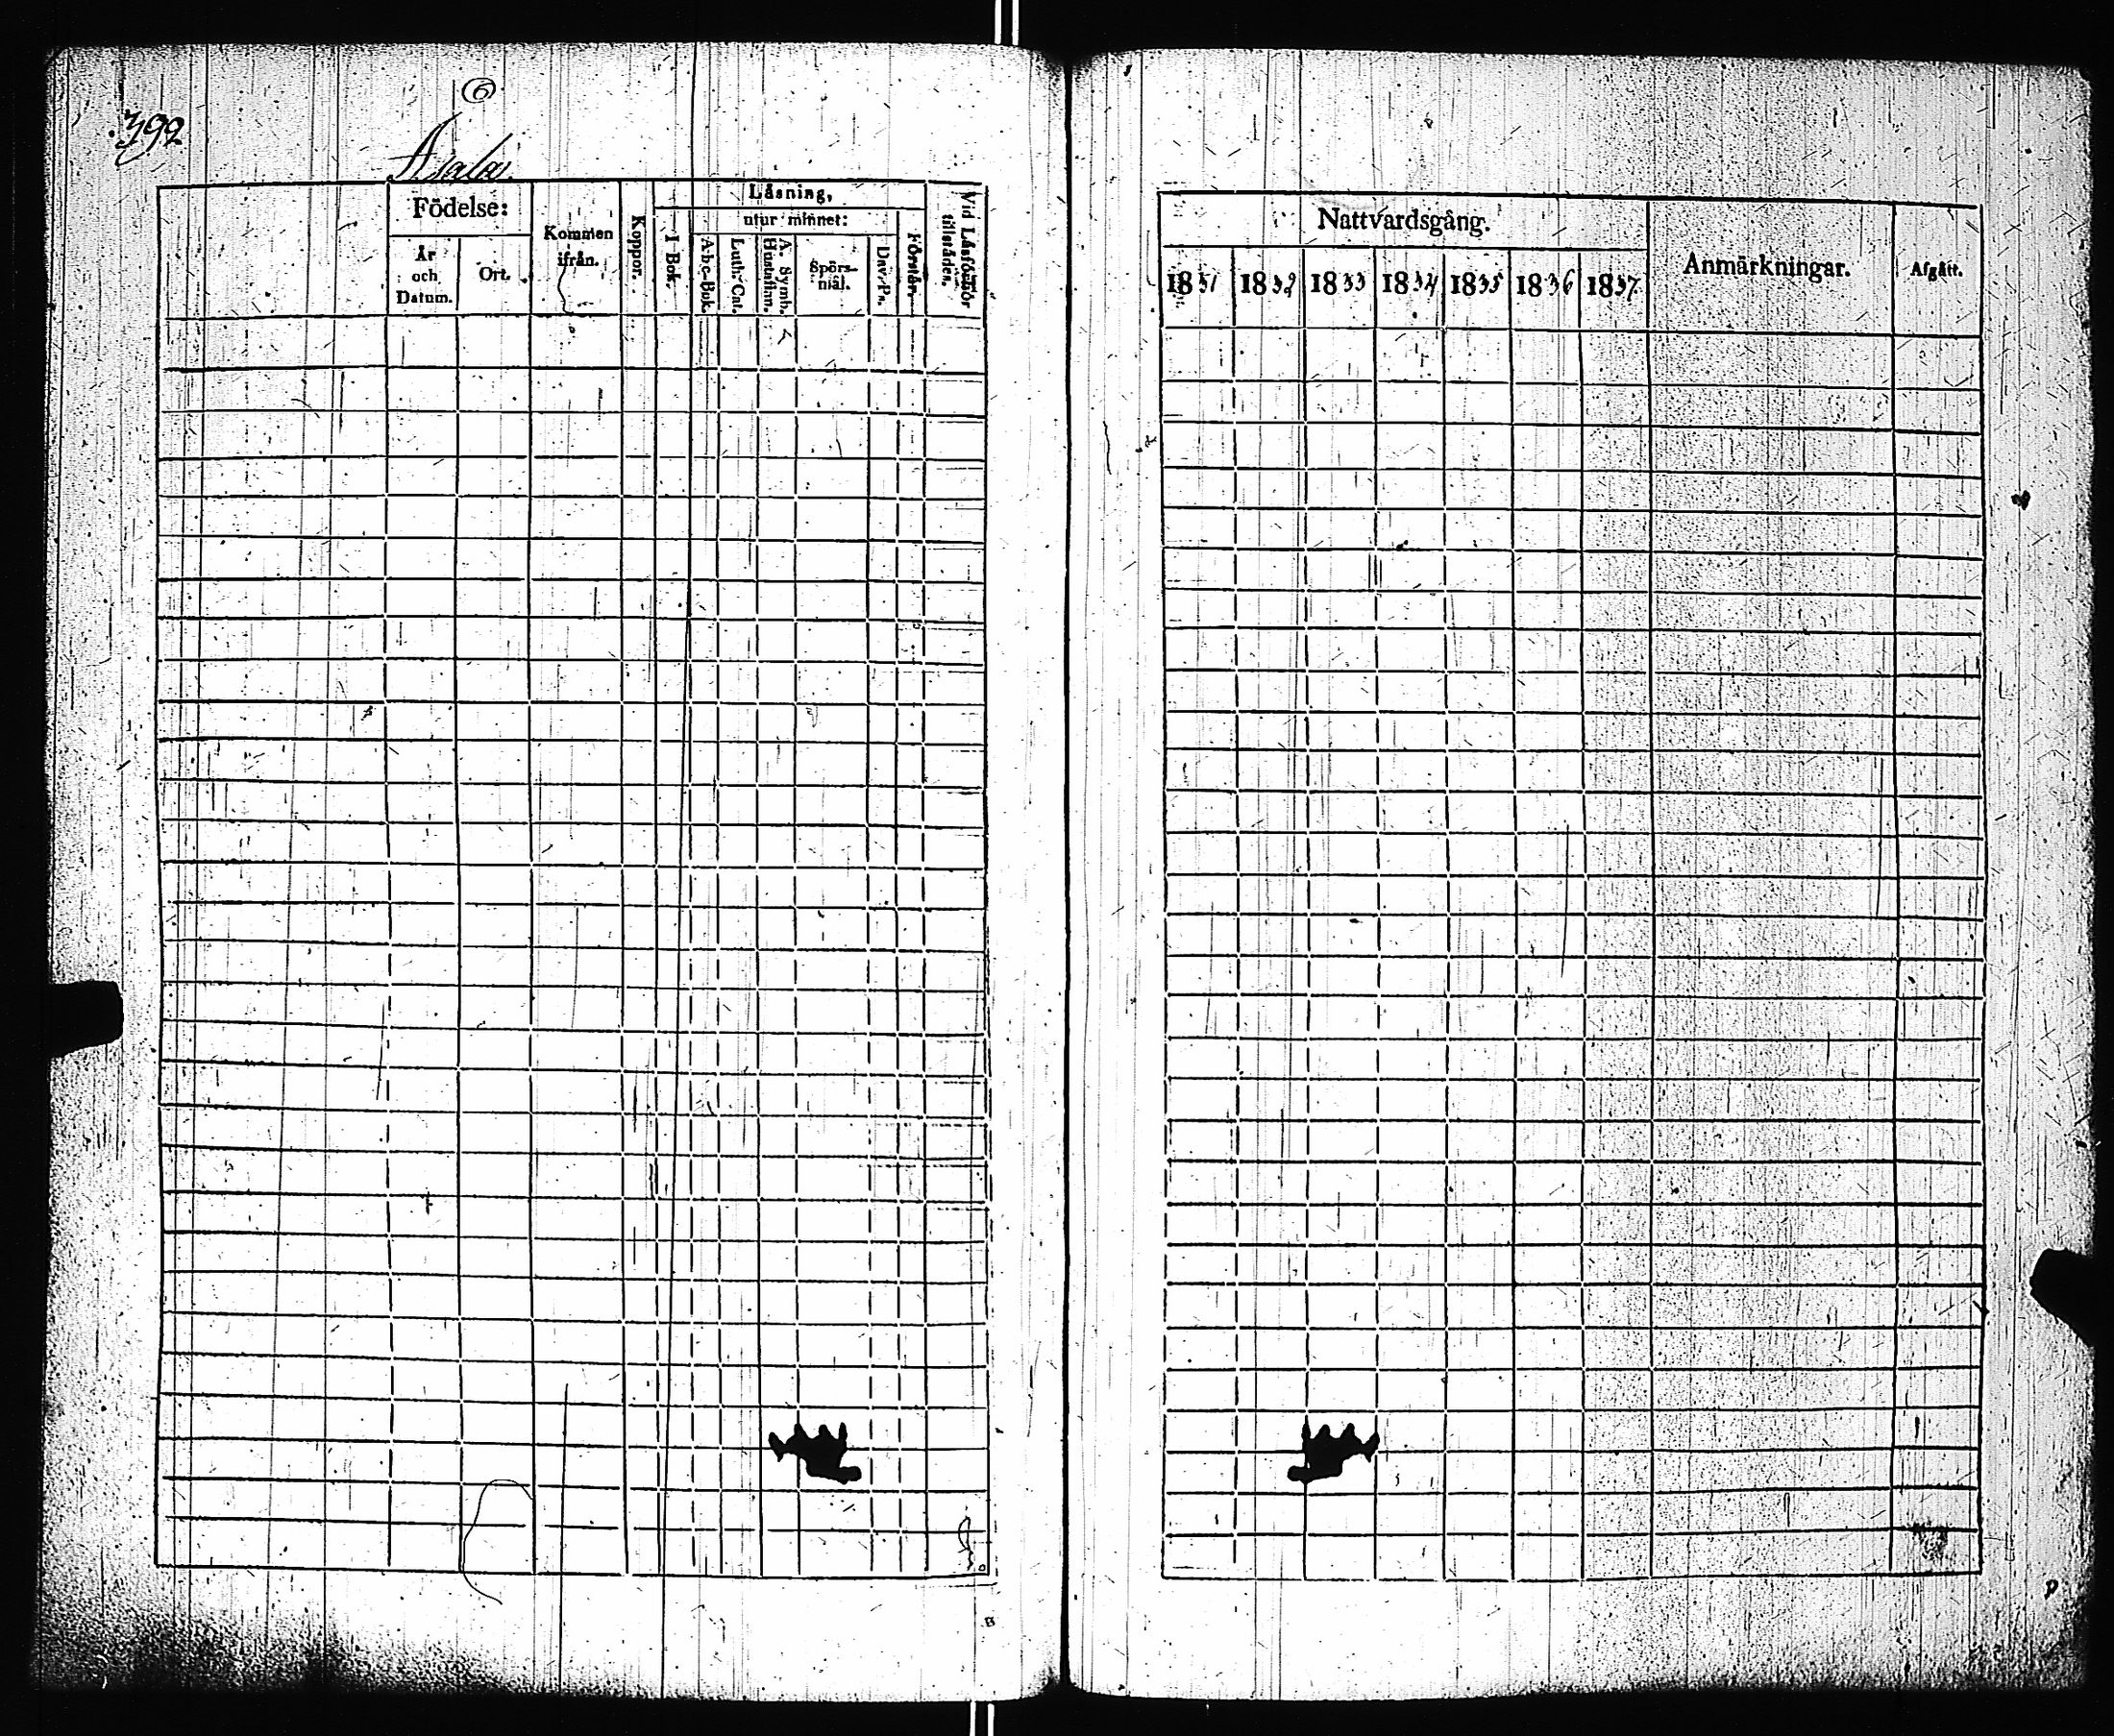 6
392
Asala
Födelse:
År och Datum.
Ort.
Kommen ifrån.
Koppor.
Läsning,
I Bok.
utur minnet:
A-b-c-Bok.
Luth: Cat.
A. Symb. Hustaflan.
Spörs-mål.
Dav. Ps.
Förstår.
Vid Läsförhör tillstädes.
Nattvardsgång.
1831 1832 1833 1834 1835 1836 1837.
Anmärkningar.
Afgått.